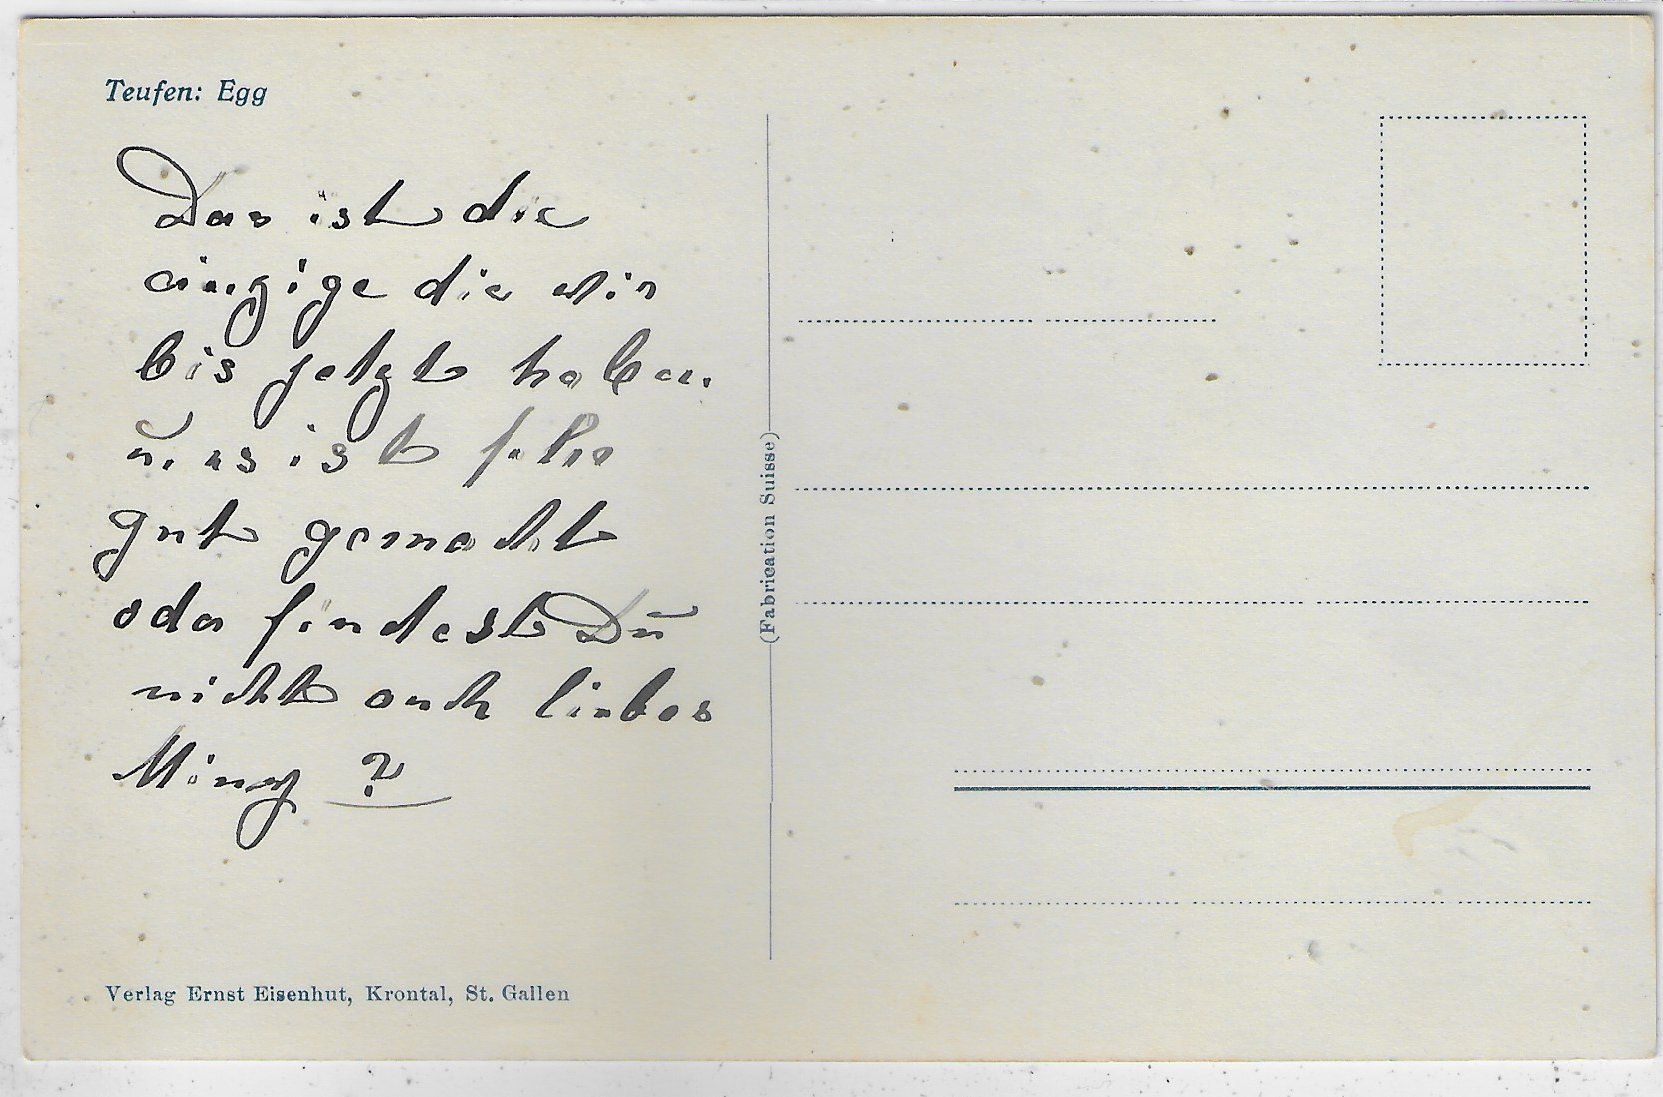 Teufen: Egg
Das ist die
einzige die wir
bis jetzt haben.
u. es ist sehr
gut gemacht
oder findest Du
nicht auch liebes
Miny ?
(Fabrication Suisse)
Verlag Ernst Eisenhut, Krontal, St. Gallen